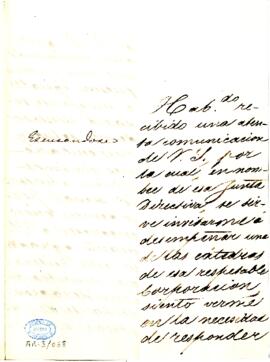 Habdo re-
cibido una aten-
ta comunicacion
de V. S. por
la cual, en nom-
bre de esa Junta
Directiva, se sir-
ve invitarme á
desempeñar una
de las cátedras
de esa respetable
Corporacion,
siento verme
en la necesidad
de responder
Escusandose
AR-3/038